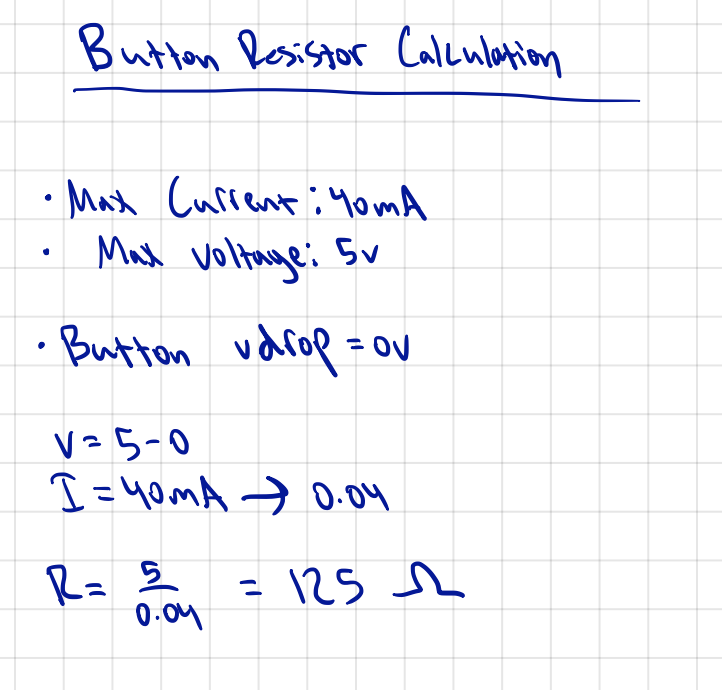 Button Resistor Calculation
· Max Current: 40mA
· Max voltage: 5v
· Button vdrop = 0v
V = 5-0
I = 40mA → 0.04
R = 5/0.04 = 125 Ω